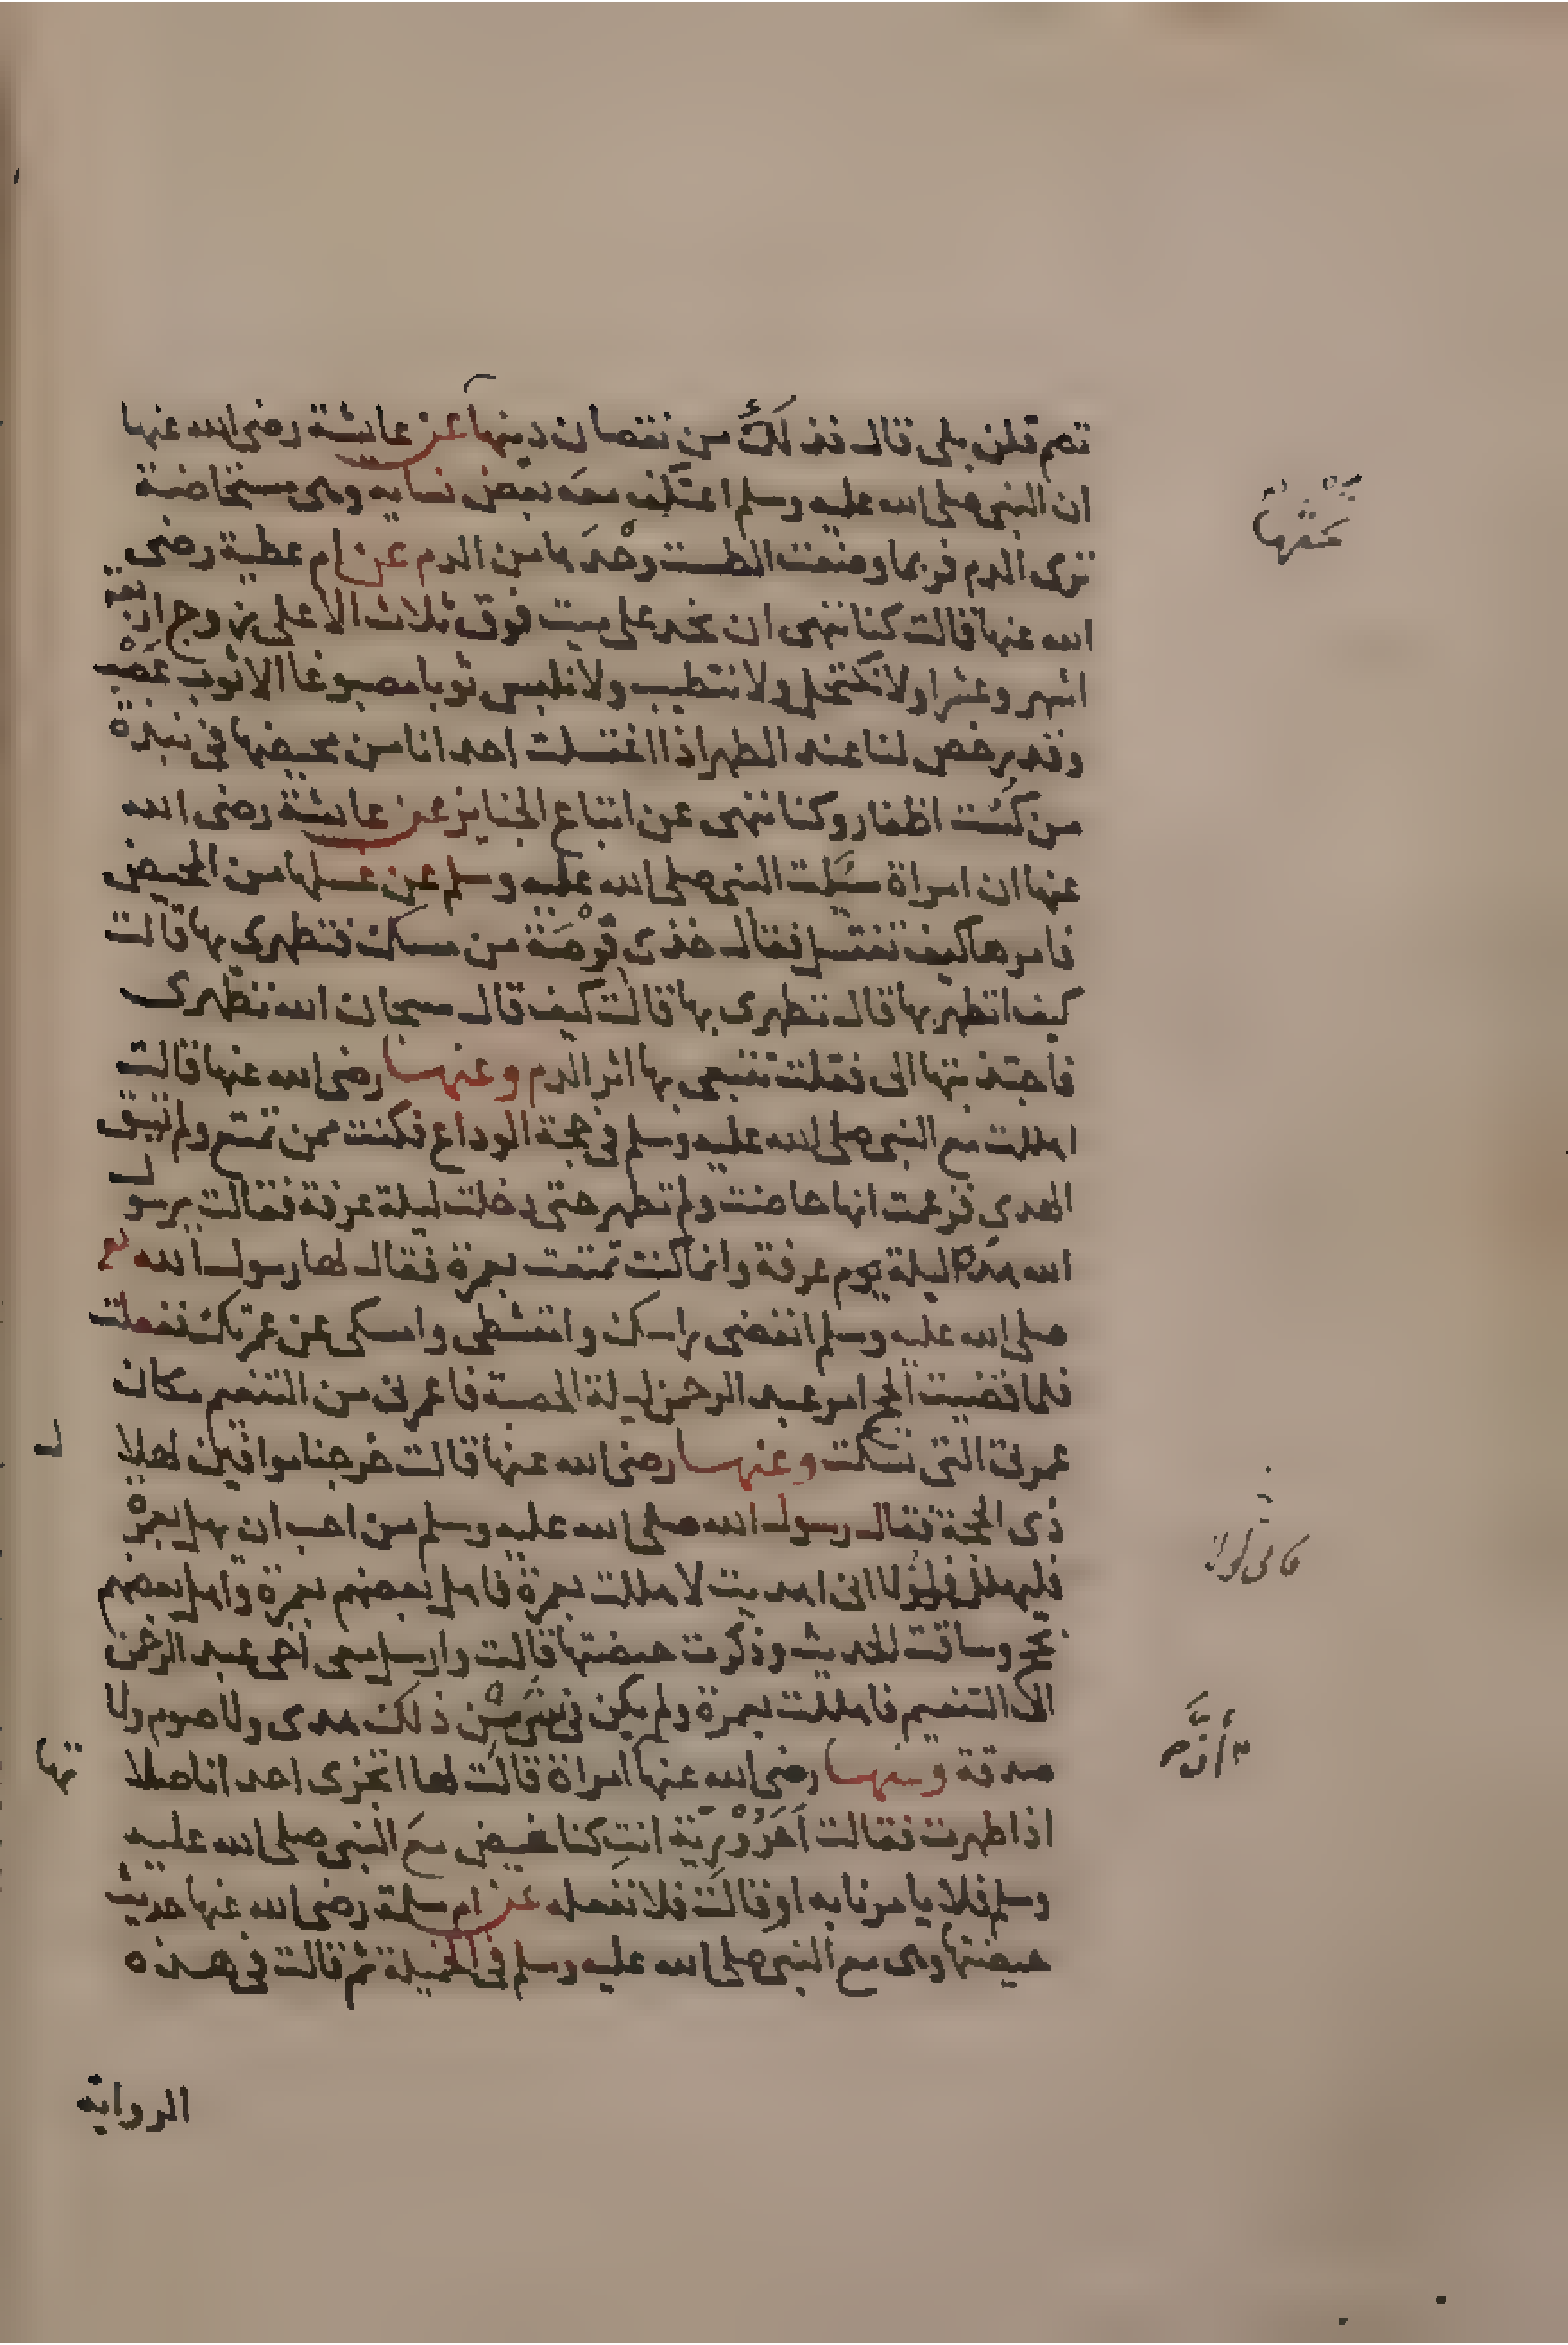 تصم قلن بلى قال فذلك من نقصان دينها عن عايشة رضى الله عنها
ان النبى صلى الله عليه وسلم اعتكف معه بعض نسايه وهى مستحاضة
ترى الدم فربما وضعت الطست تحتها من الدم عن ام عطية رضى
الله عنها قالت كنا ننهى ان نحد على ميت فوق ثلاث الا على زوج اربعة
اشهر وعشرا ولا نكتحل ولا نتطيب ولا نلبس ثوبا مصبوغا الا ثوب عصب
وقد رخص لنا عند الطهر اذا اغتسلت احدانا من محيضها فى نبذة
من كست اظفار وكنا ننهى عن اتباع الجنايز عن عايشة رضى الله
عنها ان امراة سئلت النبى صلى الله عليه وسلم عن غسلها من المحيض
فامرها كيف تغتسل فقال خذى فرصة من مسك فتطهرى بها قالت
كيف اتطهر بها قال تطهرى بها قالت كيف قال سبحان الله تطهرى
فاجتذبتها الى فقلت تتبعى بها اثر الدم وعنها رضى الله عنها قالت
اهللت مع النبى صلى الله عليه وسلم فى حجة الوداع فكنت ممن تمتع ولم تسق
الهدى فزعمت انها حاضت ولم تطهر حتى دخلت ليلة عرفة فقالت يرسول
الله هذه ليلة يوم عرفة وانما كنت تمتعت بعمرة فقال لها رسول الله
صلى الله عليه وسلم انقضى راسك وامتشطى وامسكى عن عمرتك ففعلت
فلما قضيت الحج امر عبد الرحمن ليلة الحصبة فاعمرنى من التنعيم مكان
عمرتى التى نسكت وعنها رضى الله عنها قالت خرجنا موافين لهلال
ذى الحجة فقال رسول الله صلى الله عليه وسلم من احب ان يهل بعمرة
فليهلل فلولا انى اهديت لاهللت بعمرة فاهل بعضهم بعمرة واهل بعضهم
بحج وساقت الحديث وذكرت حيضتها قالت وارسل معى اخى عبد الرحمن
الى التنعيم فاهللت بعمرة ولم يكن فى شئ من ذلك هدى ولا صوم ولا
صدقة وعنها رضى الله عنها امراة قالت لها اتجزى احدانا صلاتها
اذا طهرت فقالت احرورية انت كنا نحيض مع النبى صلى الله عليه
وسلم فلا يامرنا به او قالت فلا نفعله عن ام سلمة رضى الله عنها حديث
حيضتها وهى مع النبى صلى الله عليه وسلم فى الخميلة ثم قالت فى هذه
الرواية